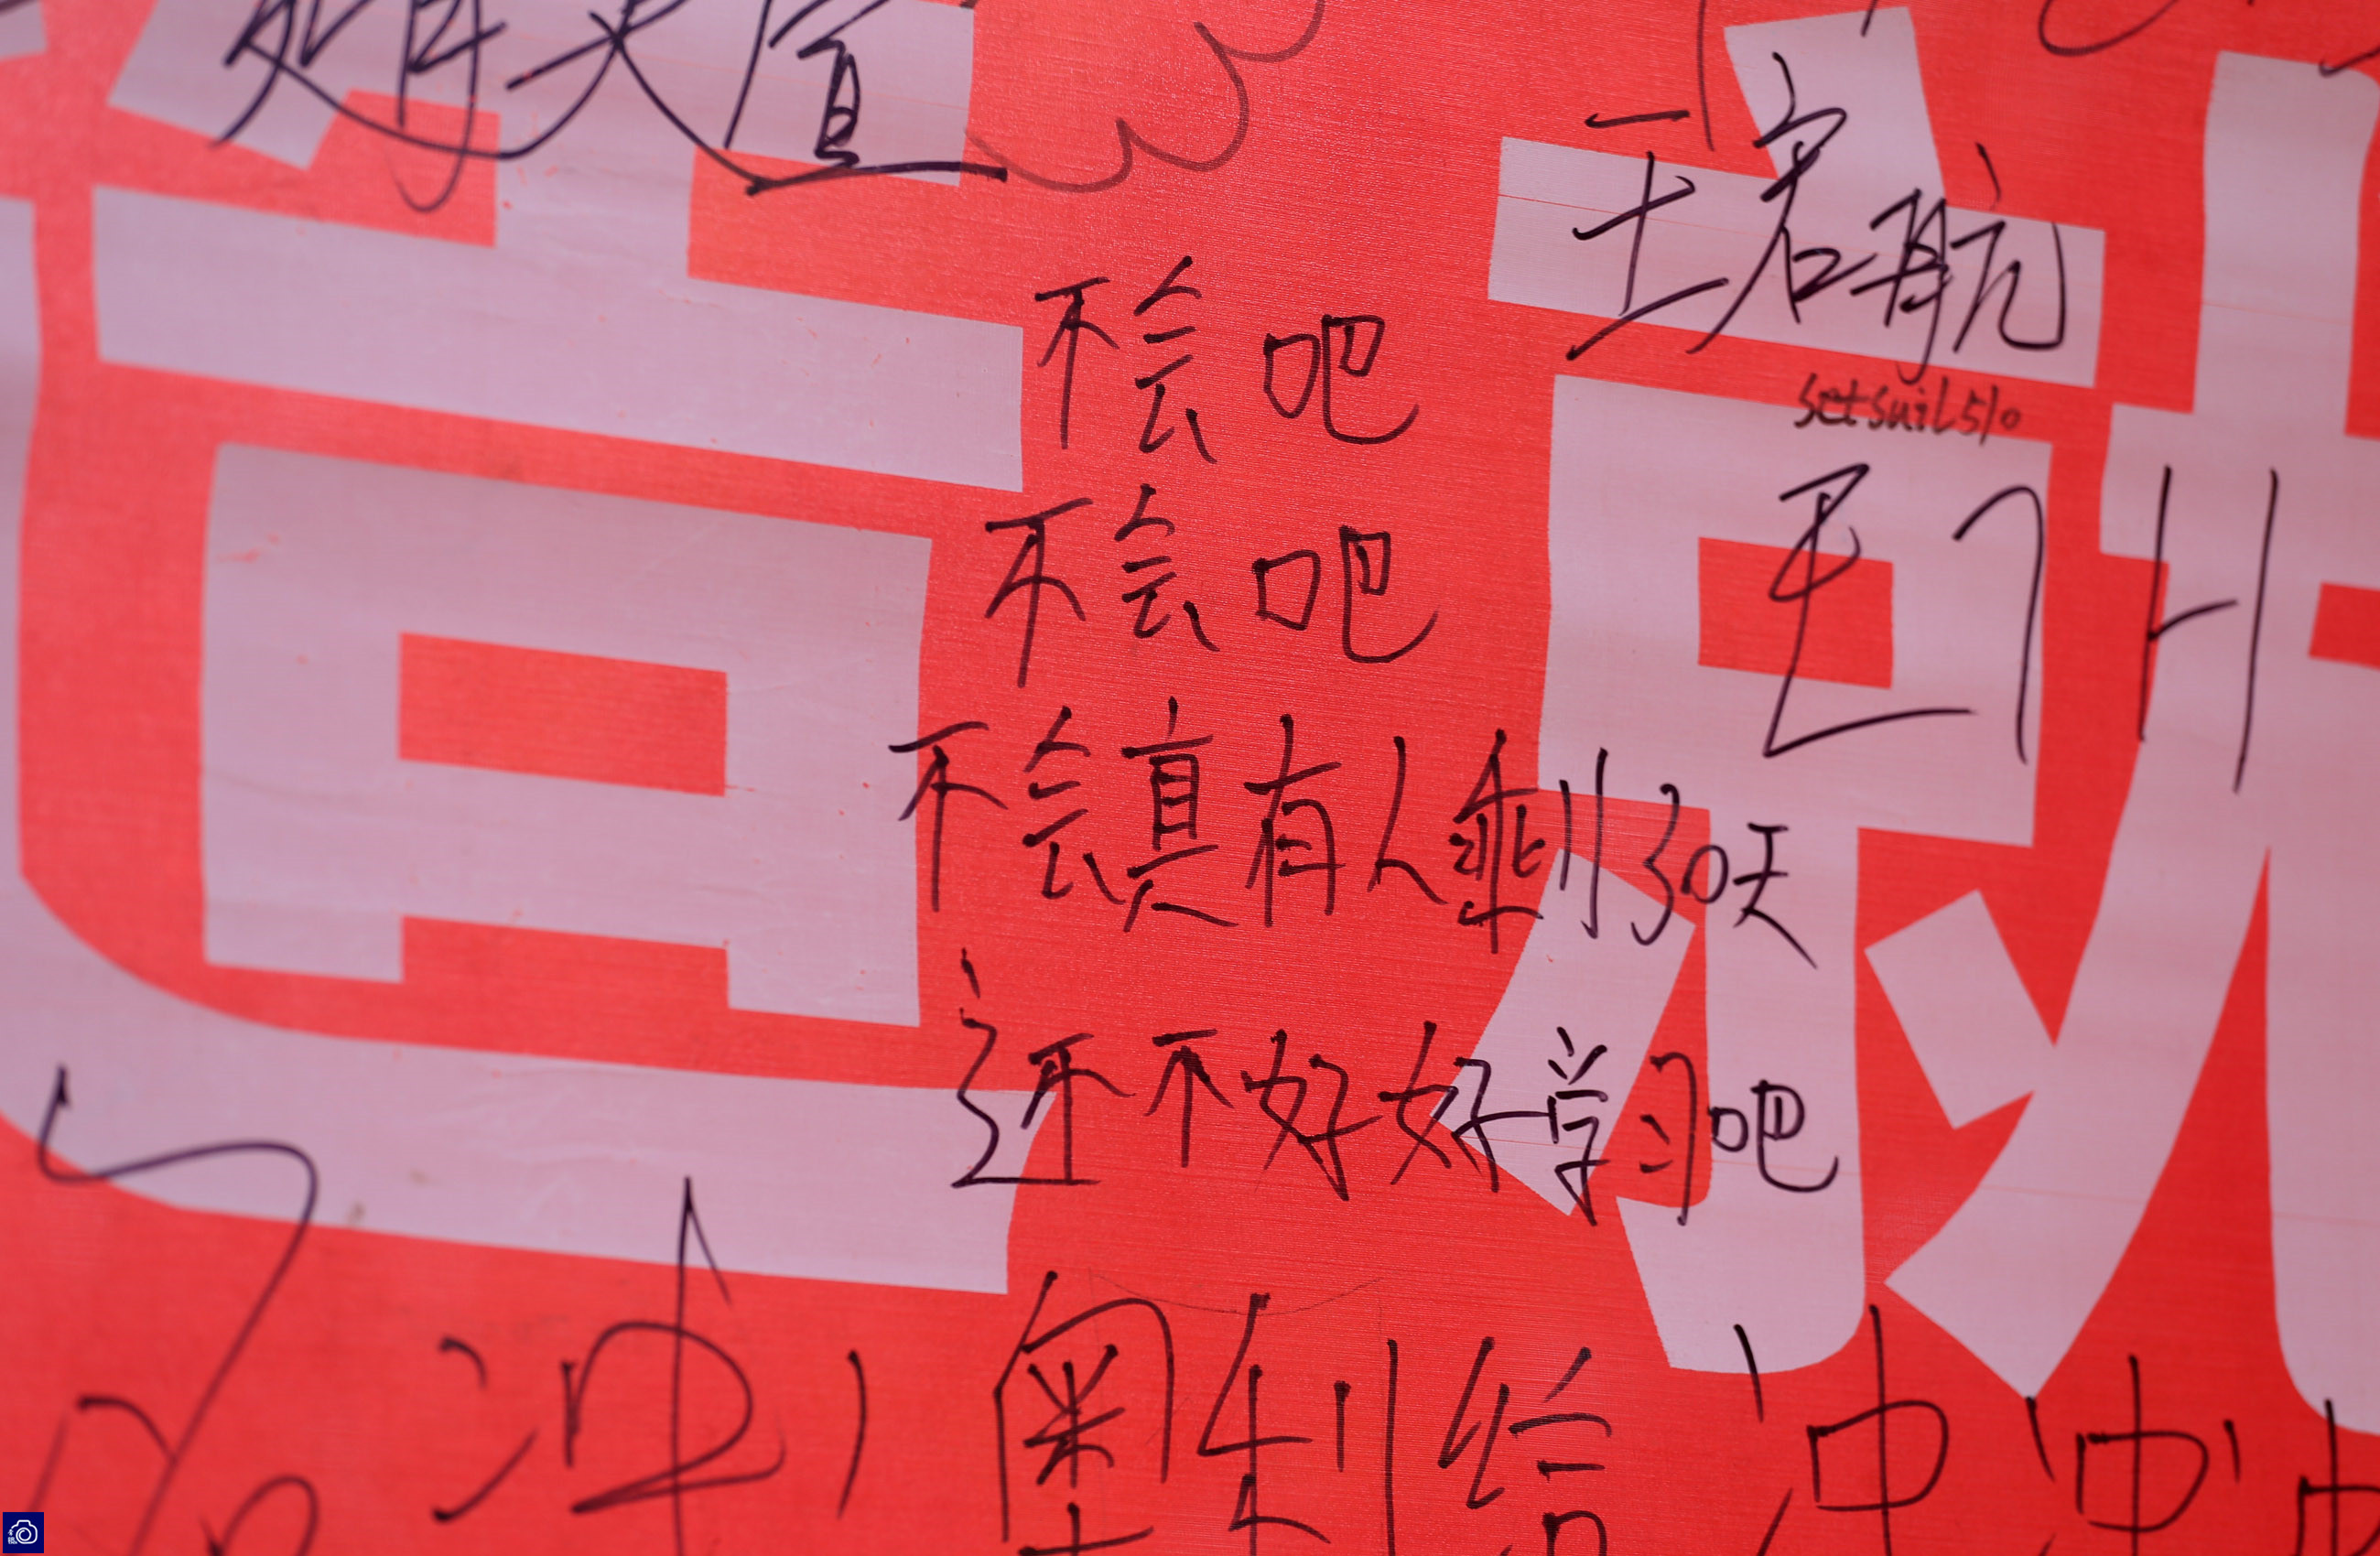 王君航
setsuil510
不会吧
不会吧
不会真有人剩30天
还不好好学习吧
冲
奥利给
冲冲冲